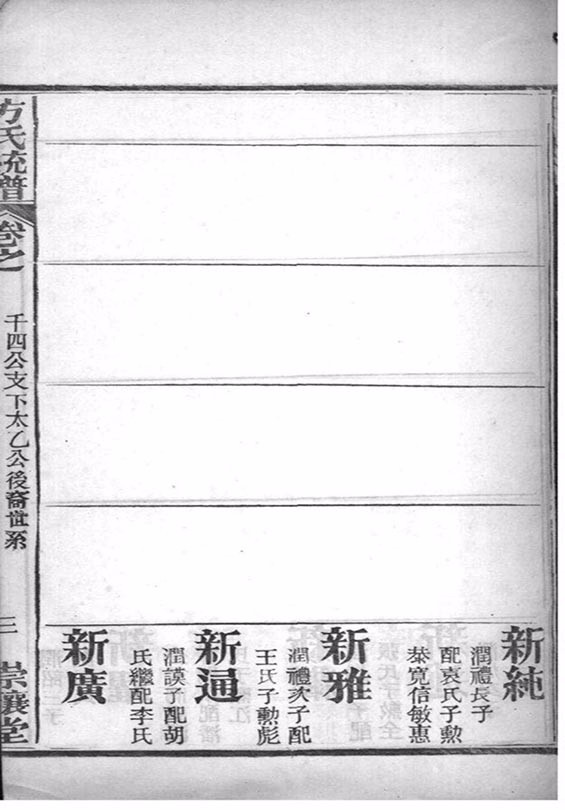 新純
潤禮長子
配袁氏子勲
恭寬信敏惠
新雅
潤禮次子配
王氏子勲彪
新通
潤謨子配胡
氏繼配李氏
新廣
方氏統譜
卷之
千四公支下太乙公後裔世系
三
崇讓堂